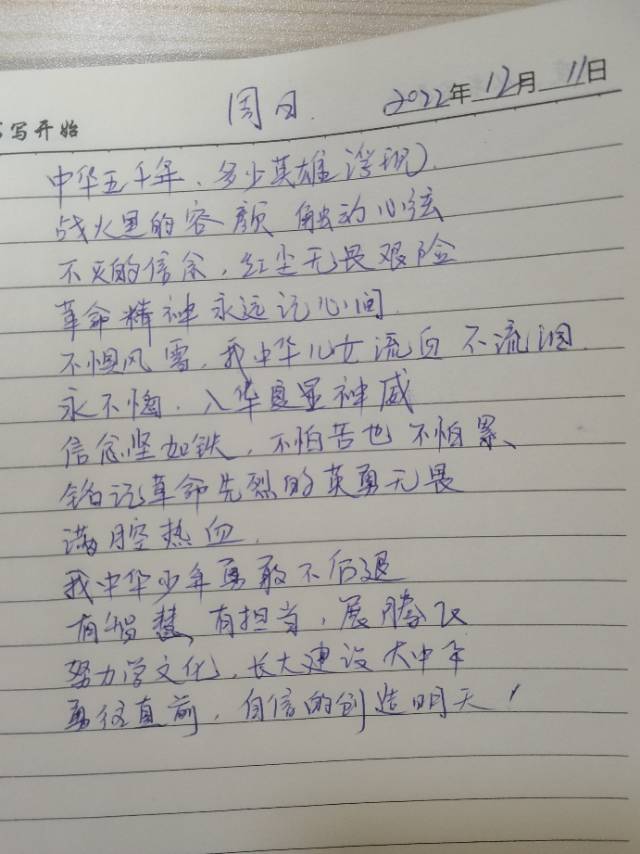 周日 2022年12月11日
写开始
中华五千年、多少英雄浮现
战火里的容颜 触动心弦
不灭的信念，红尘无畏艰险
革命精神永远记心间
不惧风雪，我中华儿女流血不流泪
永不悔、八华夏显神威
信念坚如铁，不怕苦也不怕累、
铭记革命先烈的英勇无畏
满腔热血，
我中华少年勇敢不后退
有智慧，有担当，展腾飞
努力学文化，长大建设大中华
勇往直前，自信的创造明天！